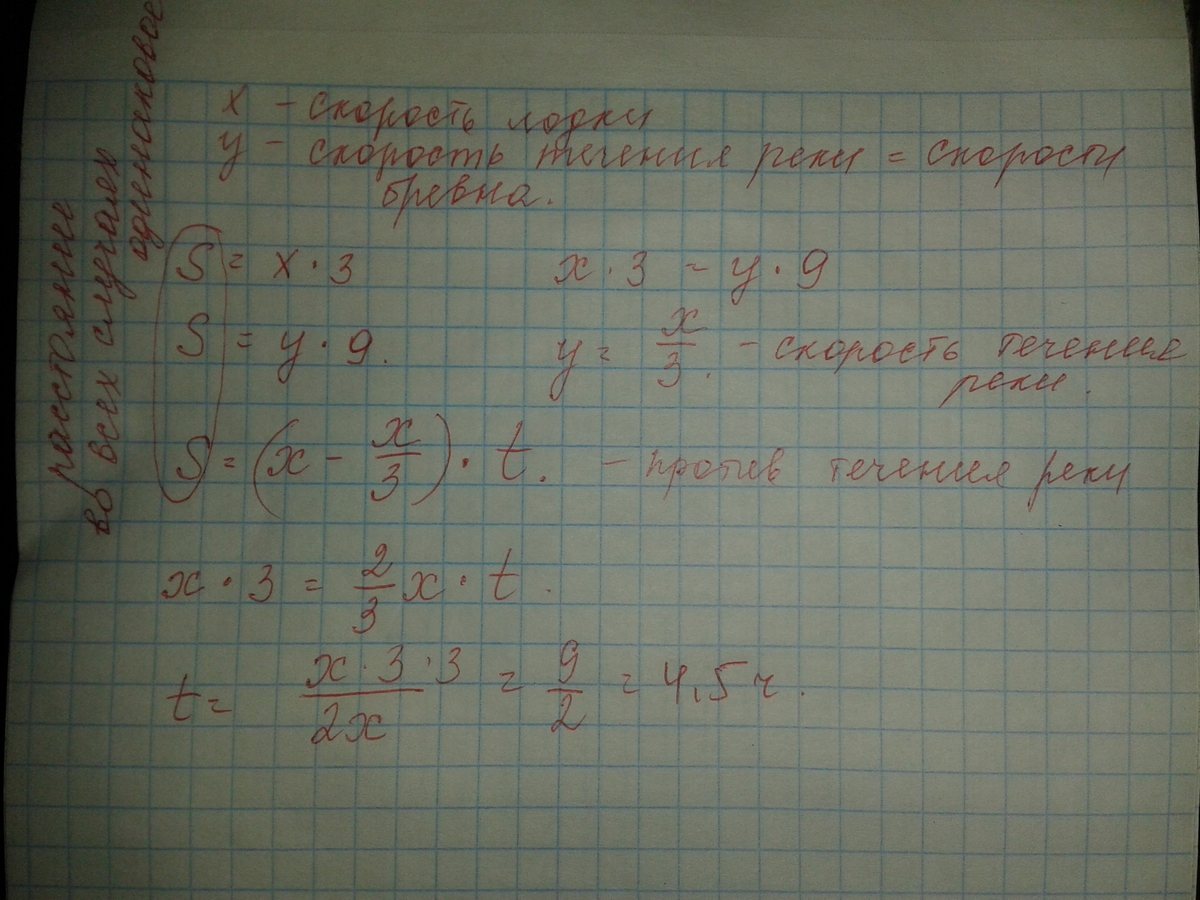 расстояние
во всех случаях
одинаковое
x - скорость лодки
y - скорость течения реки = скорости
бревна.
S = x · 3
x · 3 = y · 9
S = y · 9.
y = x/3. - скорость течения
реки.
S = (x - x/3) · t. - против течения реки
x · 3 = 2/3 x · t.
t = x · 3 · 3 / 2x = 9/2 = 4,5 ч.